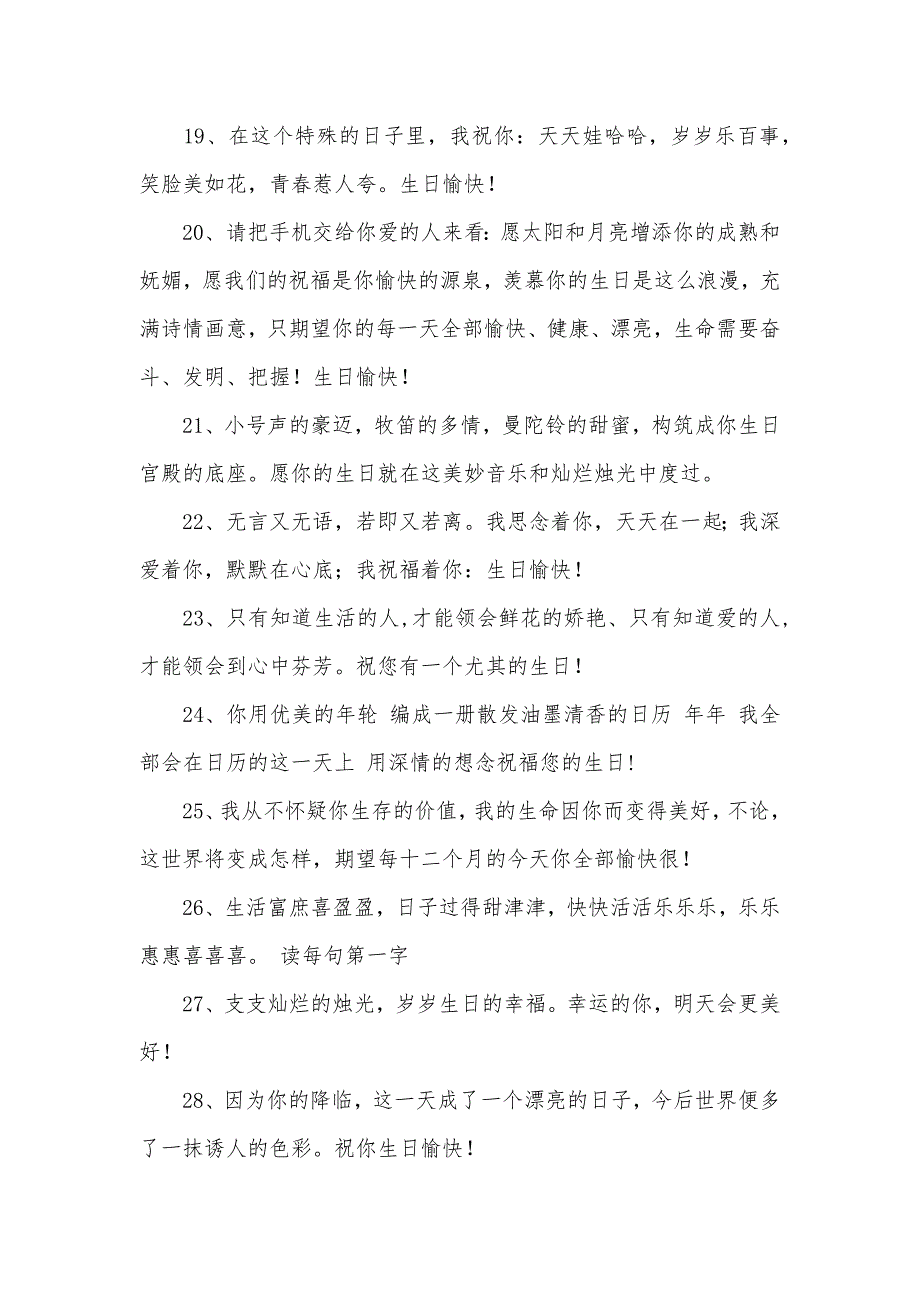 19、在这个特殊的日子里，我祝你：天天娃哈哈，岁岁乐百事，
笑脸美如花，青春惹人夸。生日愉快！
20、请把手机交给你爱的人来看：愿太阳和月亮增添你的成熟和
妩媚，愿我们的祝福是你愉快的源泉，羡慕你的生日是这么浪漫，充
满诗情画意，只期望你的每一天全部愉快、健康、漂亮，生命需要奋
斗、发明、把握！生日愉快！
21、小号声的豪迈，牧笛的多情，曼陀铃的甜蜜，构筑成你生日
宫殿的底座。愿你的生日就在这美妙音乐和灿烂烛光中度过。
22、无言又无语，若即又若离。我思念着你，天天在一起；我深
爱着你，默默在心底；我祝福着你：生日愉快！
23、只有知道生活的人,才能领会鲜花的娇艳、只有知道爱的人,
才能领会到心中芬芳。祝您有一个尤其的生日！
24、你用优美的年轮 编成一册散发油墨清香的日历 年年 我全
部会在日历的这一天上 用深情的想念祝福您的生日!
25、我从不怀疑你生存的价值，我的生命因你而变得美好，不论，
这世界将变成怎样，期望每十二个月的今天你全部愉快很！
26、生活富庶喜盈盈，日子过得甜津津，快快活活乐乐乐，乐乐
惠惠喜喜喜。 读每句第一字
27、支支灿烂的烛光，岁岁生日的幸福。幸运的你，明天会更美
好！
28、因为你的降临，这一天成了一个漂亮的日子，今后世界便多
了一抹诱人的色彩。祝你生日愉快！